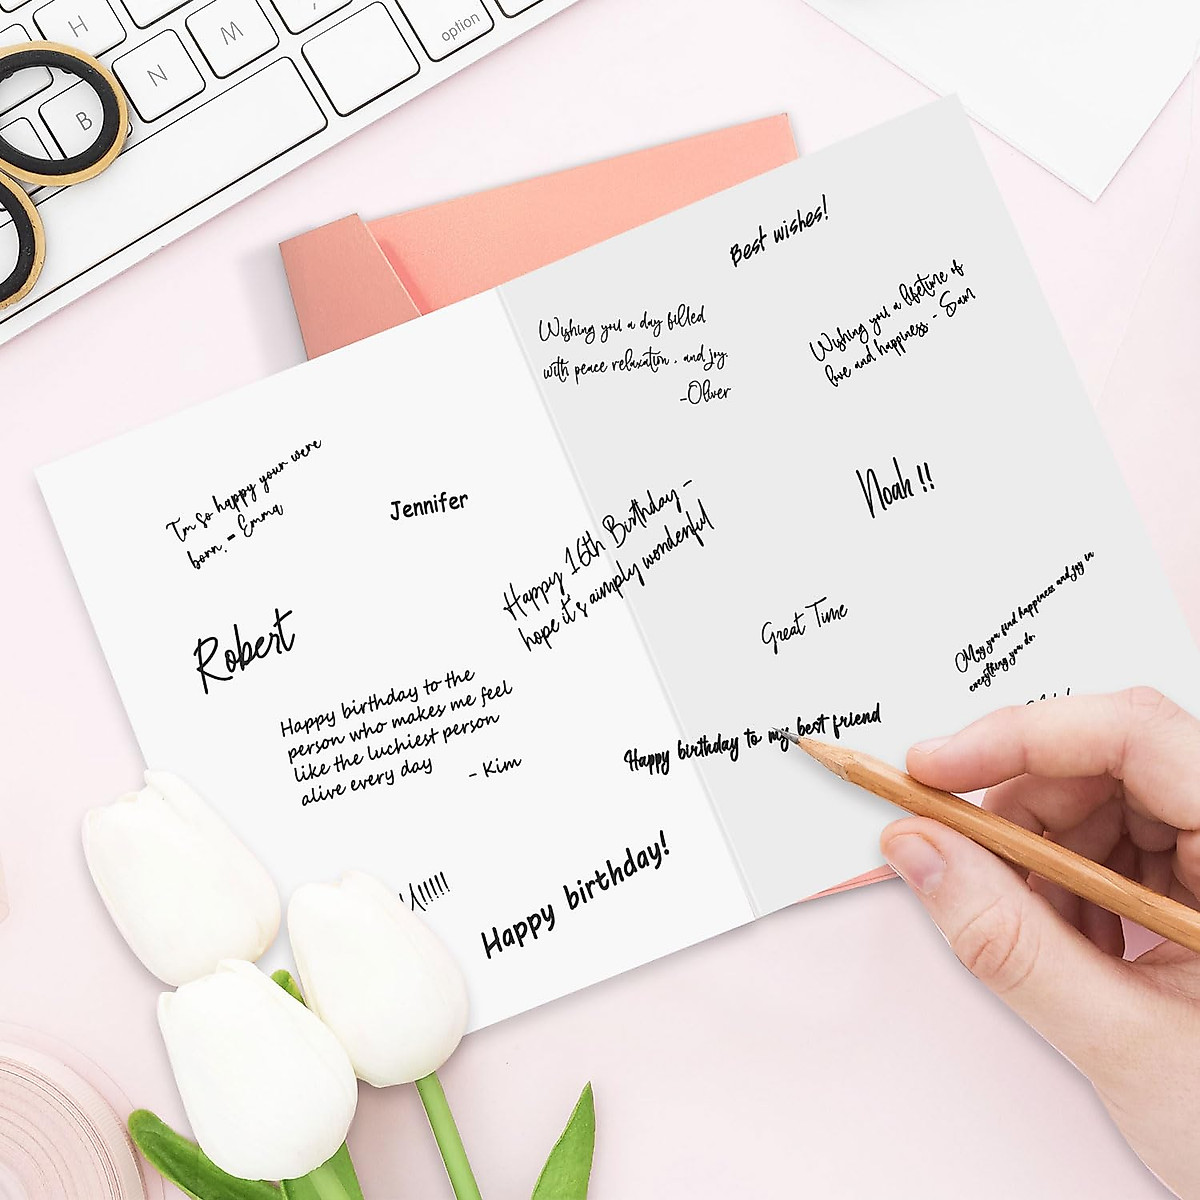 H
M
N
B
option
Best wishes!
Wishing you a day filled
with peace relaxation , and joy.
-Oliver
Wishing you a lifetime of
love and happiness - Sam
I'm so happy your were
born. - Emma
Jennifer
Happy 16th Birthday -
hope it's aimply wonderful
Noah !!
Robert
Great Time
May you find happiness and joy in
everything you do.
Happy birthday to the
person who makes me feel
like the luchiest person
alive every day
- Kim
Happy birthday to my best friend
Happy birthday!